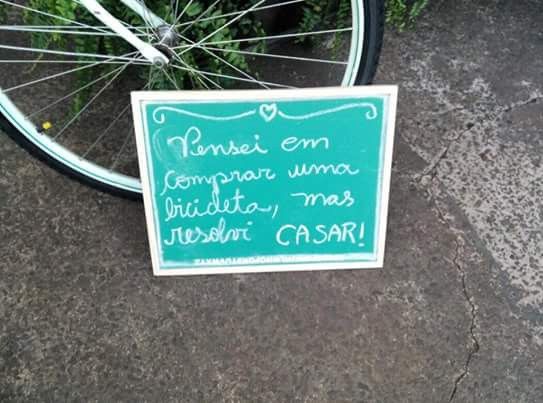 Pensei em
comprar uma
bicicleta, mas
resolvi CASAR!